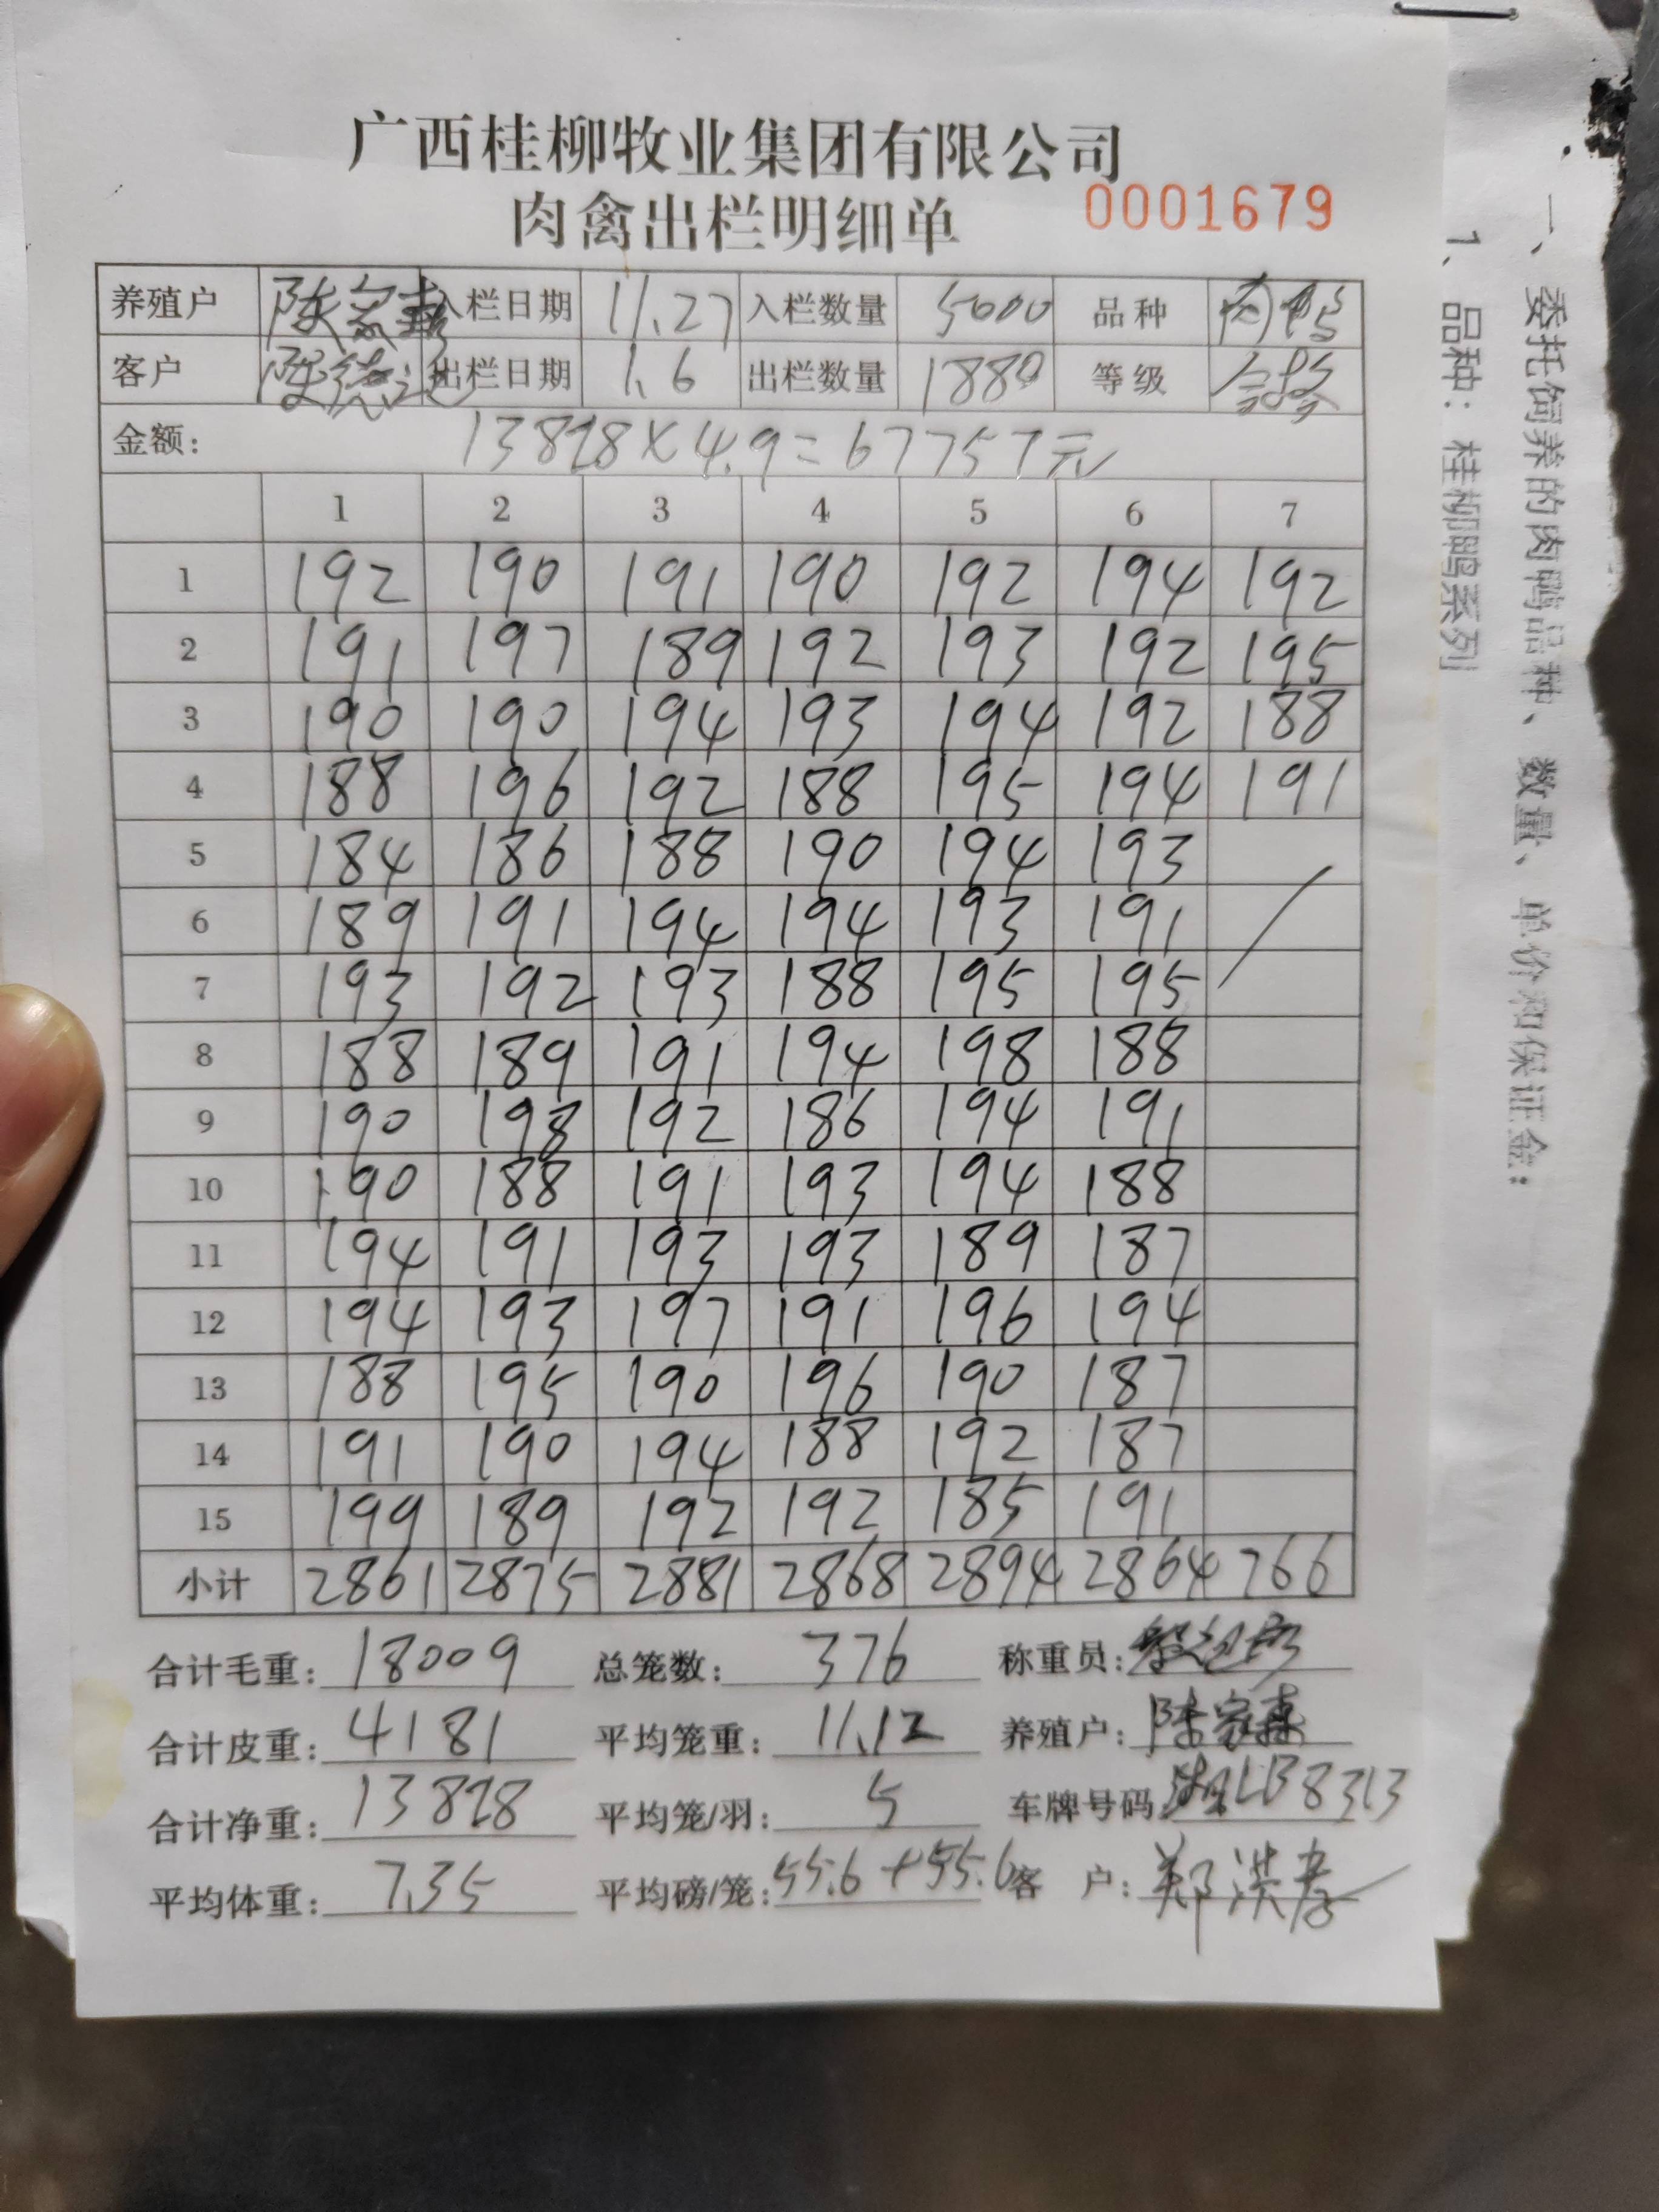 广西桂柳牧业集团有限公司
肉禽出栏明细单 0001679
养殖户 陈 入栏日期 11.27 入栏数量 5000 品种 肉鸭
客户 陈德 出栏日期 1.6 出栏数量 1880 等级
金额: 13828×4.9=67757元
1 2 3 4 5 6 7
1 192 190 191 190 192 194 192
2 191 197 189 192 193 192 195
3 190 190 194 193 194 192 188
4 188 196 192 188 195 194 191
5 184 186 188 190 194 193
6 189 191 194 194 193 191
7 193 192 193 188 195 195
8 188 189 191 194 198 188
9 190 198 192 186 194 191
10 190 188 191 193 194 188
11 194 191 193 193 189 187
12 194 193 197 191 196 194
13 188 195 190 196 190 187
14 191 190 194 188 192 187
15 199 189 192 192 185 191
小计 2861 2875 2881 2868 2894 2864 766
合计毛重: 18009 总笼数: 376 称重员:
合计皮重: 4181 平均笼重: 11.12 养殖户: 陈家
合计净重: 13828 平均笼/羽: 5 车牌号码 湘LB8313
平均体重: 7.35 平均磅/笼: 55.6+55.6 客 户: 郑洪孝
一、委托饲养的肉鸭品种、数量、单价和保证金:
1、品种: 桂柳鸭系列